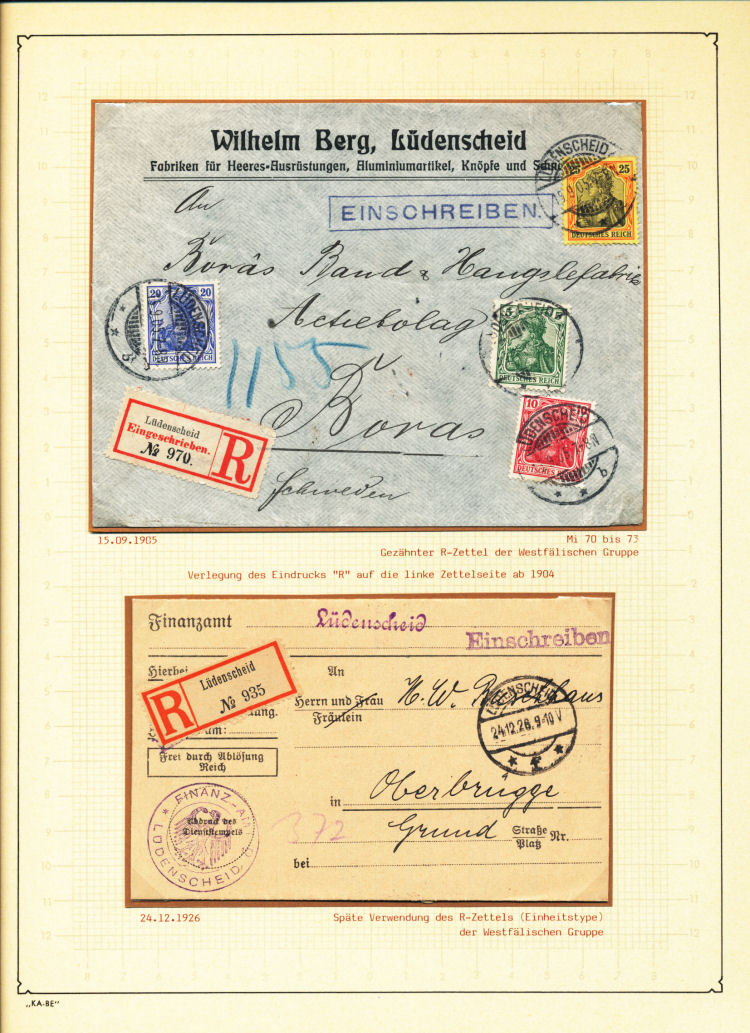 Wilhelm Berg, Lüdenscheid
Fabriken für Heeres-Ausrüstungen, Aluminiumartikel, Knöpfe und
EINSCHREIBEN.
25 25
DEUTSCHES REICH
LÜDENSCHEID
An
Borås Band & Hangslefabriks
Actiebolag
Boras
Schweden
20 20
DEUTSCHES REICH
1155
DEUTSCHES REICH
10
DEUTSCHES REICH
LÜDENSCHEID
b
Lüdenscheid
Eingeschrieben.
№ 970.
R
15.09.1905
Mi 70 bis 73
Gezähnter R-Zettel der Westfälischen Gruppe
Verlegung des Eindrucks "R" auf die linke Zettelseite ab 1904
Finanzamt Lüdenscheid
Einschreiben
Hierbei
An
R
Lüdenscheid
№ 935
Herrn und Frau
Fräulein
H. W.
LÜDENSCHEID
24.12.26.9-10V
Frei durch Ablösung
Reich
in Oberbrügge
Grund Straße Nr.
Platz
bei
FINANZ-AMT
LÜDENSCHEID
Abdruck des
Dienststempels
372
24.12.1926
Späte Verwendung des R-Zettels (Einheitstype)
der Westfälischen Gruppe
„KA-BE“